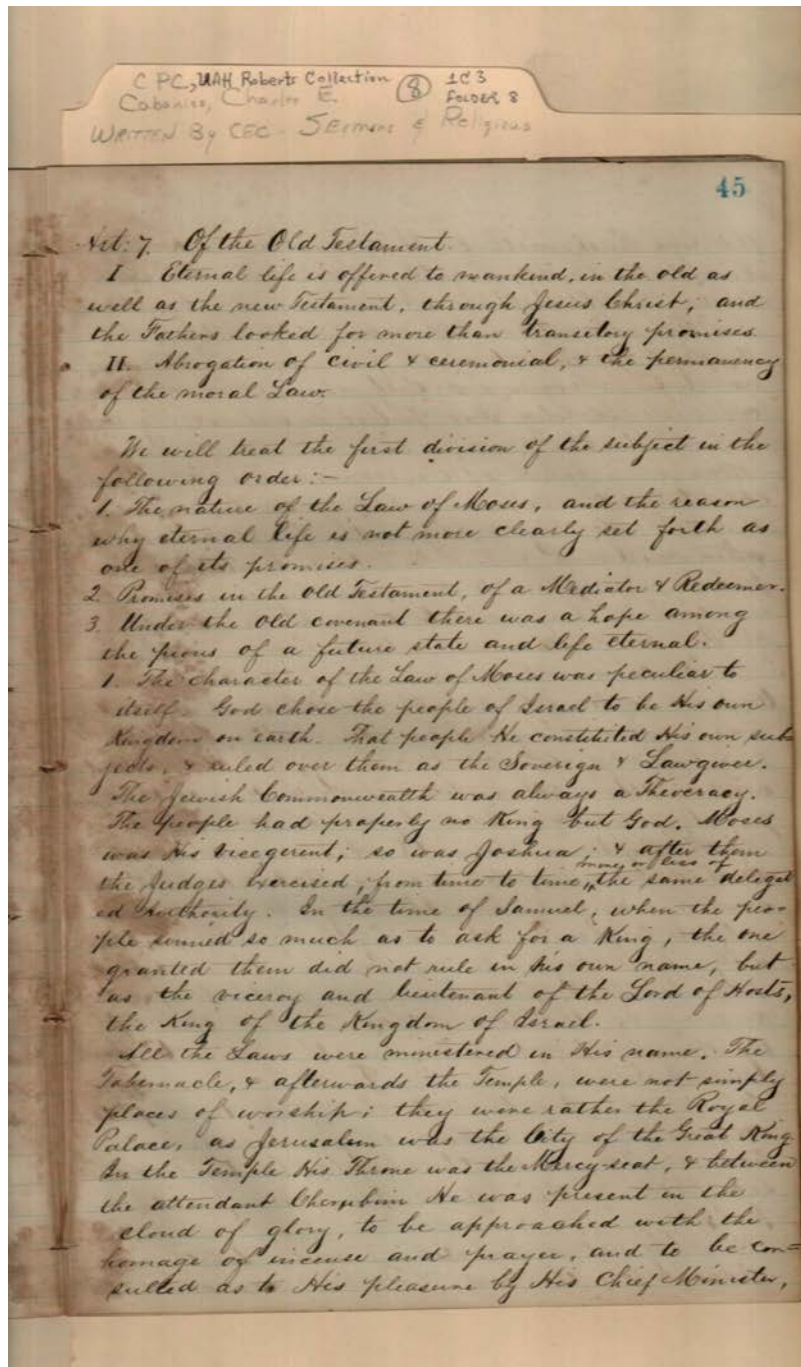 C PC, UAH Roberts Collection (8) 1C3
Cabaniss, Charles E. FOLDER 8
WRITTEN By CEC - SERMONS & Religious
45
Art: 7. Of the Old Testament.
I Eternal life is offered to mankind, in the old as
well as the new Testament, through Jesus Christ; and
the Fathers looked for more than transitory promises.
II. Abrogation of civil & ceremonial, & the permanency
of the moral Law.
We will treat the first division of the subject in the
following order:-
1. The nature of the Law of Moses, and the reason
why eternal life is not more clearly set forth as
one of its promises.
2. Promises in the Old Testament, of a Mediator & Redeemer.
3. Under the old covenant there was a hope among
the pious of a future state and life eternal.
1. The character of the Law of Moses was peculiar to
itself. God chose the people of Israel to be His own
Kingdom on earth. That people He constituted His own sub=
jects, & ruled over them as the Soverign & Lawgiver.
The Jewish Commonwealth was always a Theocracy.
The people had properly no King but God. Moses
was His vicegerent; so was Joshua; & after them
the Judges exercised, from time to time, more or less of the same delegat
ed Authority. In the time of Samuel, when the peo=
ple sinned so much as to ask for a King, the one
granted them did not rule in his own name, but
as the viceroy and lieutenant of the Lord of Hosts,
the King of the Kingdom of Israel.
All the Laws were ministered in His name. The
Tabernacle, & afterwards the Temple, were not simply
places of worship; they were rather the Royal
Palace, as Jerusalem was the City of the Great King.
In the Temple His Throne was the Mercy-seat, & between
the attendant Cherubim He was present in the
cloud of glory, to be approached with the
homage of incense and prayer, and to be con=
sulted as to His pleasure by His Chief Minister,